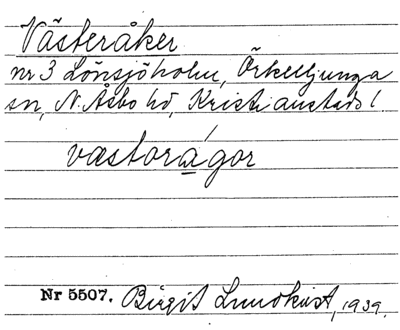 Västeråker
nr 3 Lönsjöholm, Örkelljunga
sn, N. Åsbo hd, Kristianstads l
västorágor
Nr 5507. Birgit Lundkvist, 1939.